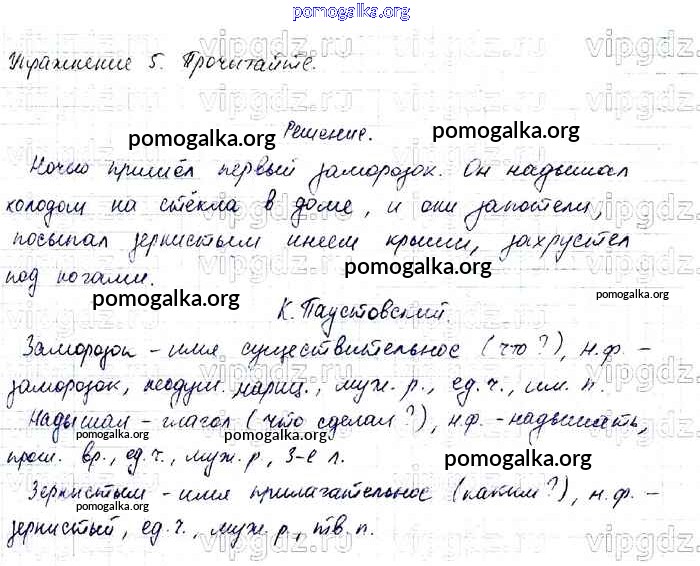 pomogalka.org
Упражнение 5. Прочитайте.
Решение.
pomogalka.org
pomogalka.org
Ночью пришёл первый заморозок. Он надышал
холодом на стёкла в доме, и они запотели,
посыпал зернистым инеем крыши, захрустел
под ногами.
pomogalka.org
pomogalka.org
pomogalka.org
К. Паустовский.
Заморозок – имя существительное (что?), н.ф. –
заморозок, неодуш. нариц., муж. р., ед. ч., им. п.
Надышал – глагол (что сделал?), н.ф. – надышать,
pomogalka.org
pomogalka.org
прош. вр., ед. ч., муж. р., 3-е л.
pomogalka.org
Зернистым – имя прилагательное (каким?), н. ф. –
pomogalka.org
зернистый, ед. ч., муж. р., тв. п.
pomogalka.org
vipgdz.ru